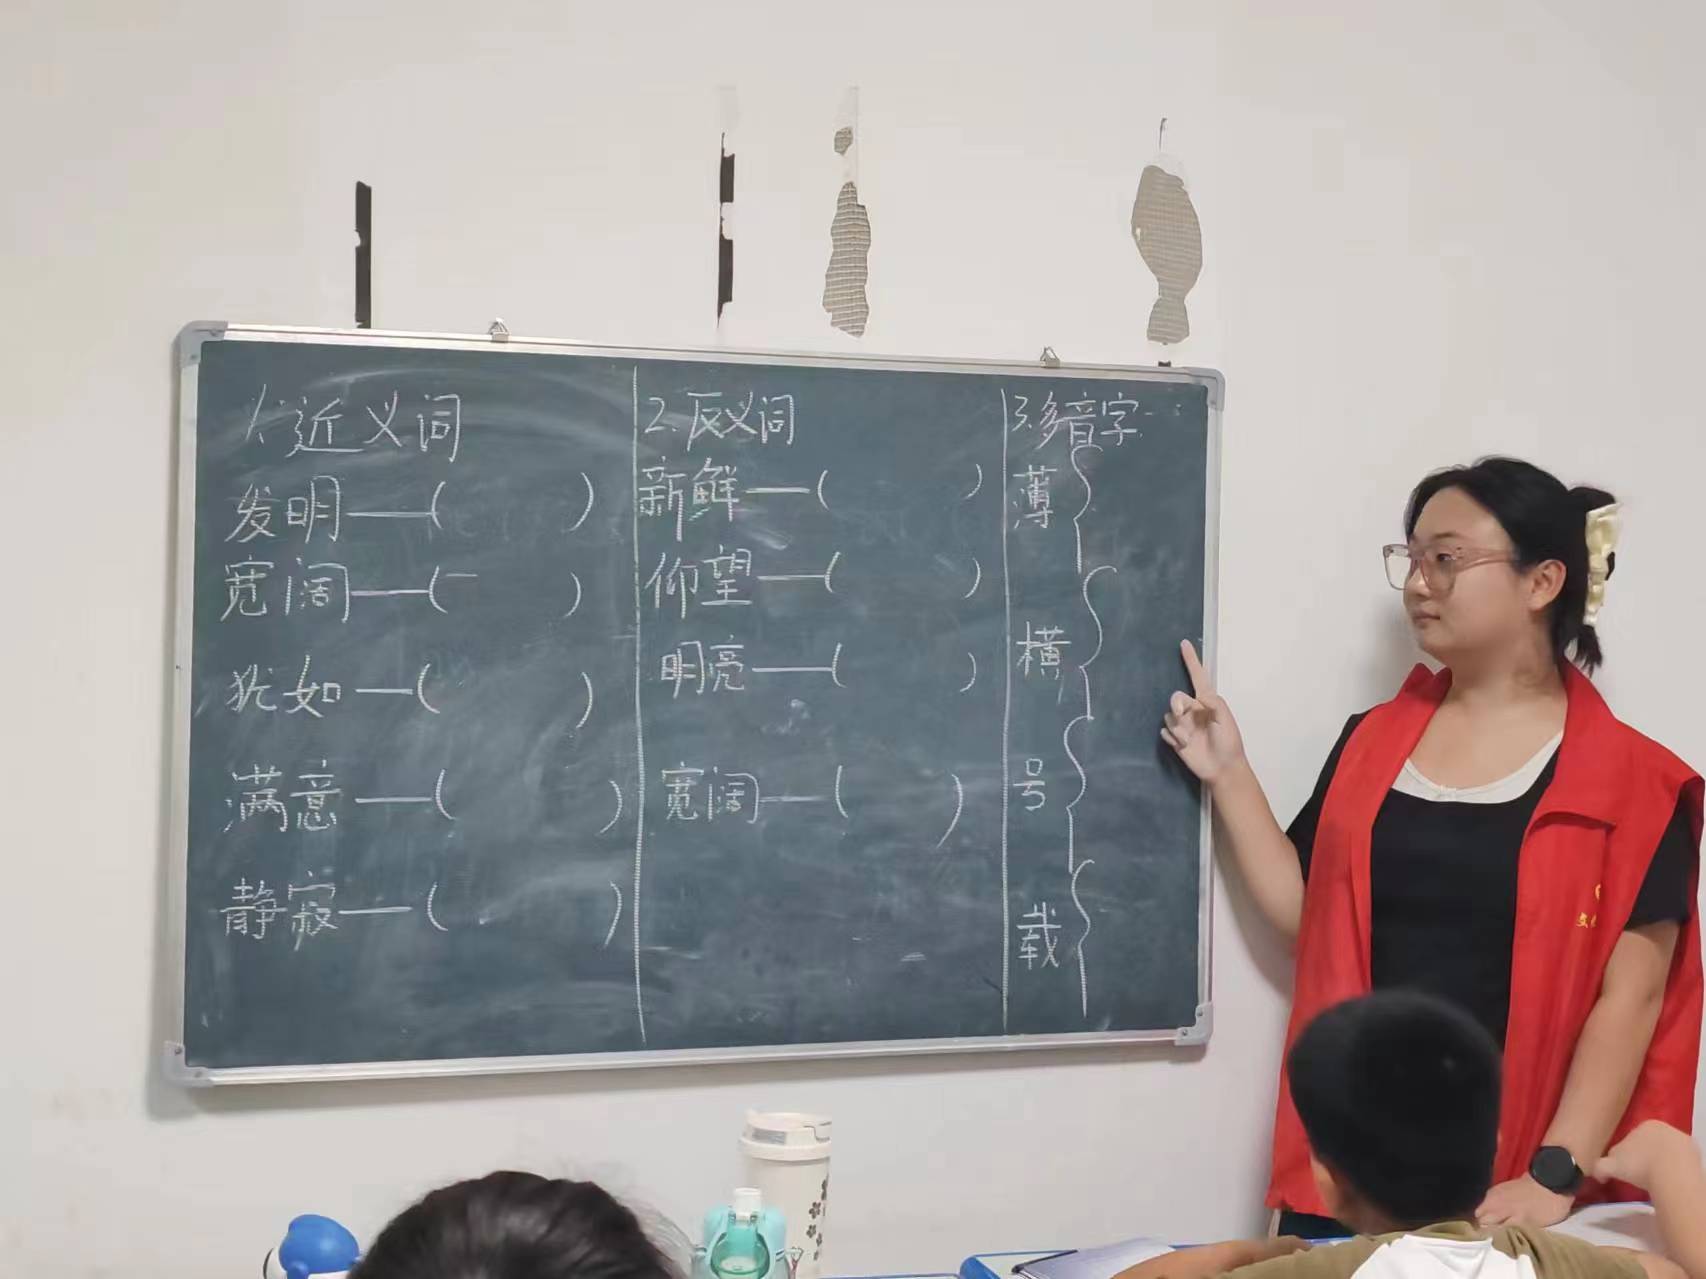 1.近义词
发明——(    )
宽阔——(    )
犹如——(    )
满意——(    )
静寂——(    )
2.反义词
新鲜——(    )
仰望——(    )
明亮——(    )
宽阔——(    )
3.多音字
薄{
横{
号{
载{